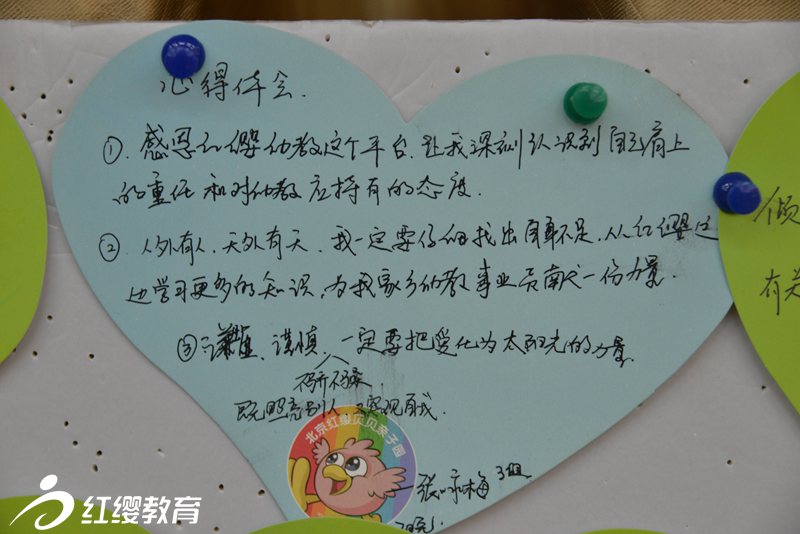 心得体会.
①.感恩红缨幼教这个平台.让我深刻认识到自己肩上
的重任和对幼教应持有的态度.
②.人外有人.天外有天.我一定要仔细找出自身不足.从红缨这
边学习更多的知识.为我家乡幼教事业贡献一份力量.
③谦虚、谨慎、一定要把爱化为太阳光的力量
不骄不躁,
既照亮别人 客观自我.
北京红缨贝贝亲子园
张咏梅
红缨教育
倾
有关